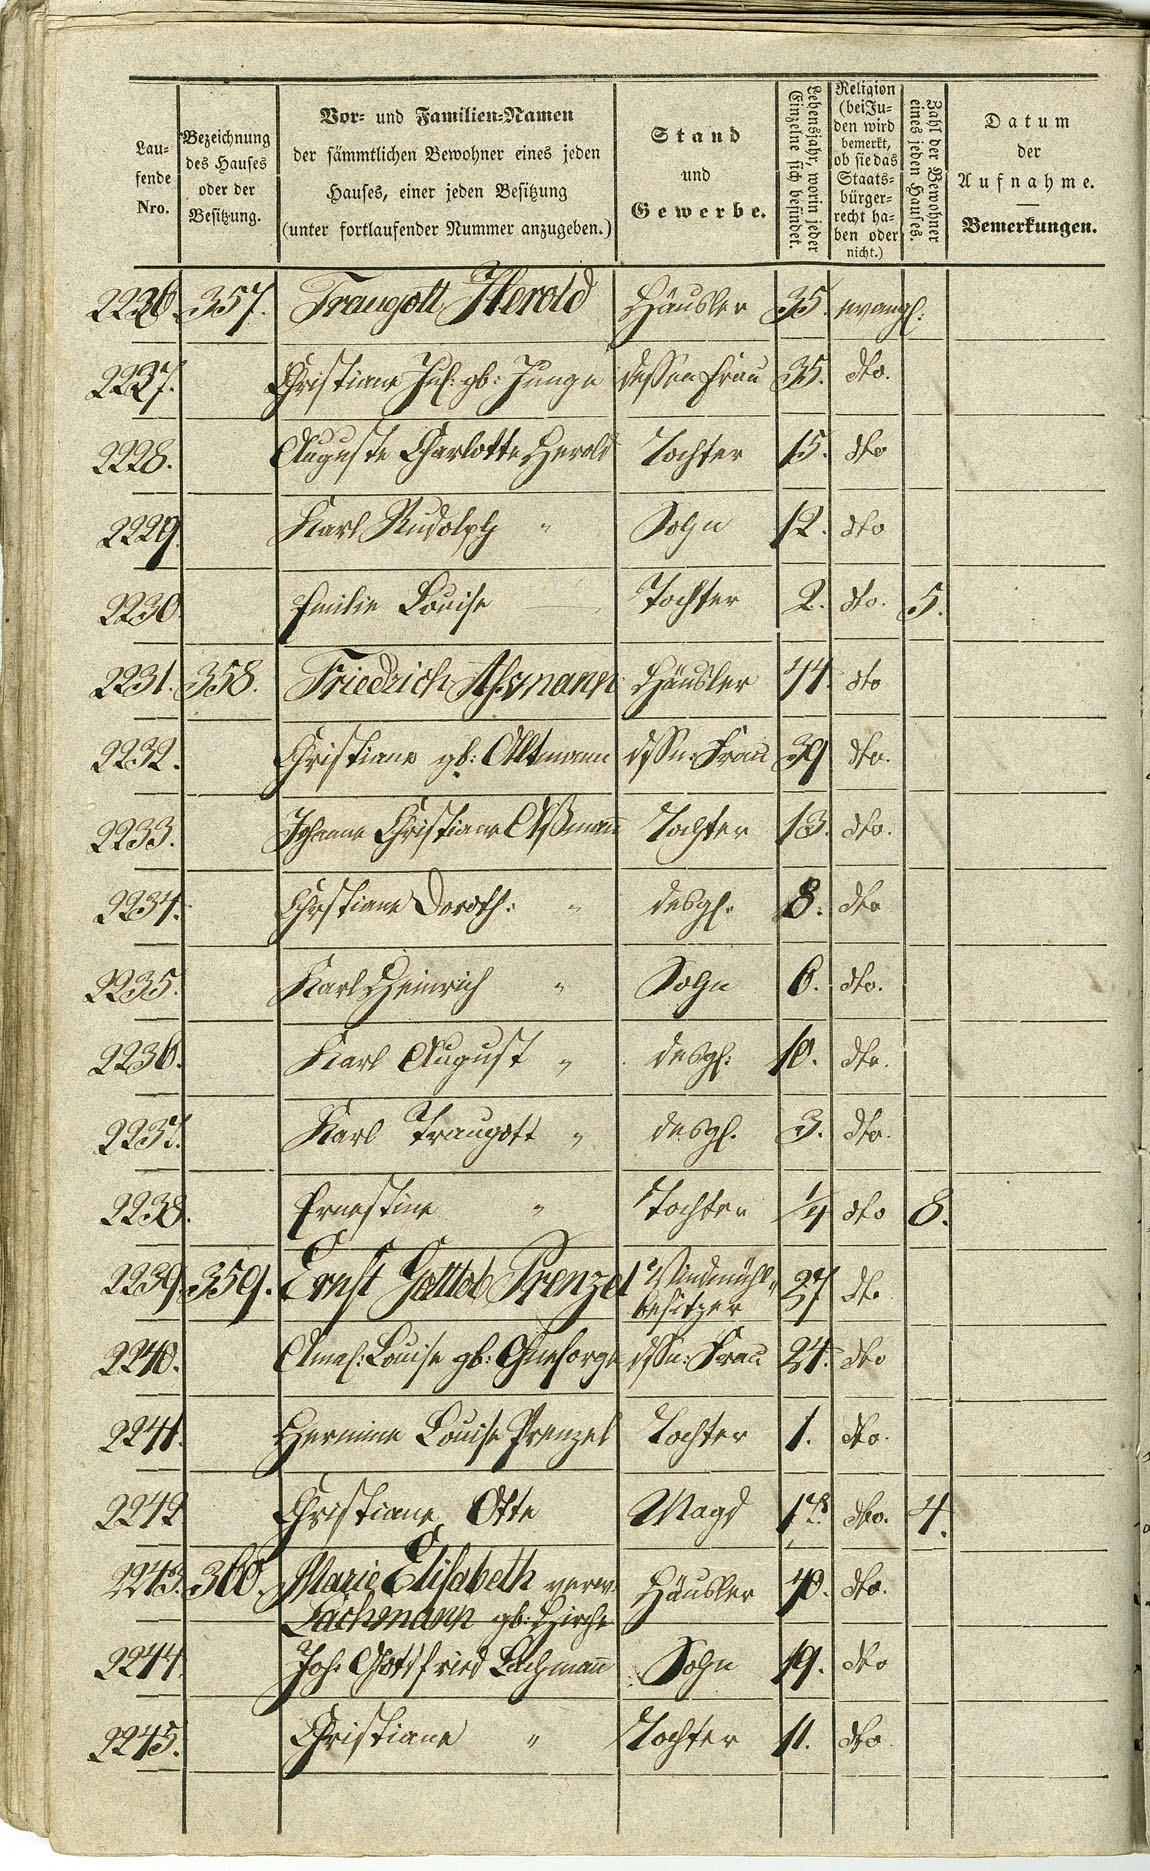 Lau-
fende
Nro.
Bezeichnung
des Hauses
oder der
Besitzung.
Vor- und Familien-Namen
der sämmtlichen Bewohner eines jeden
Hauses, einer jeden Besitzung
(unter fortlaufender Nummer anzugeben.)
Stand
und
Gewerbe.
Lebensjahr, worin jeder
Einzelne sich befindet.
Religion
(bei Ju-
den wird
bemerkt,
ob sie das
Staats-
bürger-
recht ha-
ben oder
nicht.)
Zahl der Bewohner
eines jeden Hauses.
Datum
der
Aufnahme.
Bemerkungen.
2226. 357. Traugott Herold Häusler 35. evangl.
2227. Christiane Jul: gb: Junge dessen Frau 35. dto.
2228. Auguste Charlotte Herold Tochter 15. dto
2229. Karl Rudolph " Sohn 12. dto
2230. Emilie Louise Tochter 2. dto. 5.
2231. 358. Friedrich Assmann Häusler 44. dto
2232. Christiane gb: Altmann dssn: Frau 39 dto.
2233. Johanne Christiane Aßmann Tochter 13. dto.
2234. Christiane Doroth: " desgl. 8. dto
2235. Karl Heinrich " Sohn 6. dto.
2236. Karl August " desgl: 10. dto.
2237. Karl Traugott " desgl. 3. dto.
2238. Ernestine " Tochter 1/4 dto 8.
2239. 359. Ernst Gottlob Prenzel Windmühl-
besitzer 27 dto
2240. Louise gb: dssn: Frau 24. dto
2241. Hermine Louise Prenzel Tochter 1. dto.
2242 Christiane Otte Magd dto. 4.
2243. 360. Marie Elisabeth verw. Häusler 40. dto.
Lachmann gb: Hirche
2244. Joh. Gottfried Lachmann Sohn 19. dto
2245. Christiane " Tochter 11. dto